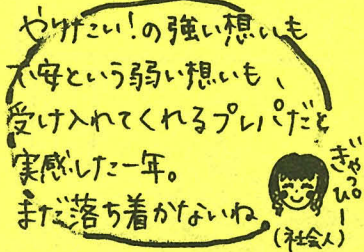 やりたい!の強い想いも
不安という弱い想いも、
受け入れてくれるプレパだと
実感した一年。
まだ落ち着かないね
ぎゃっぴー
(社会人)